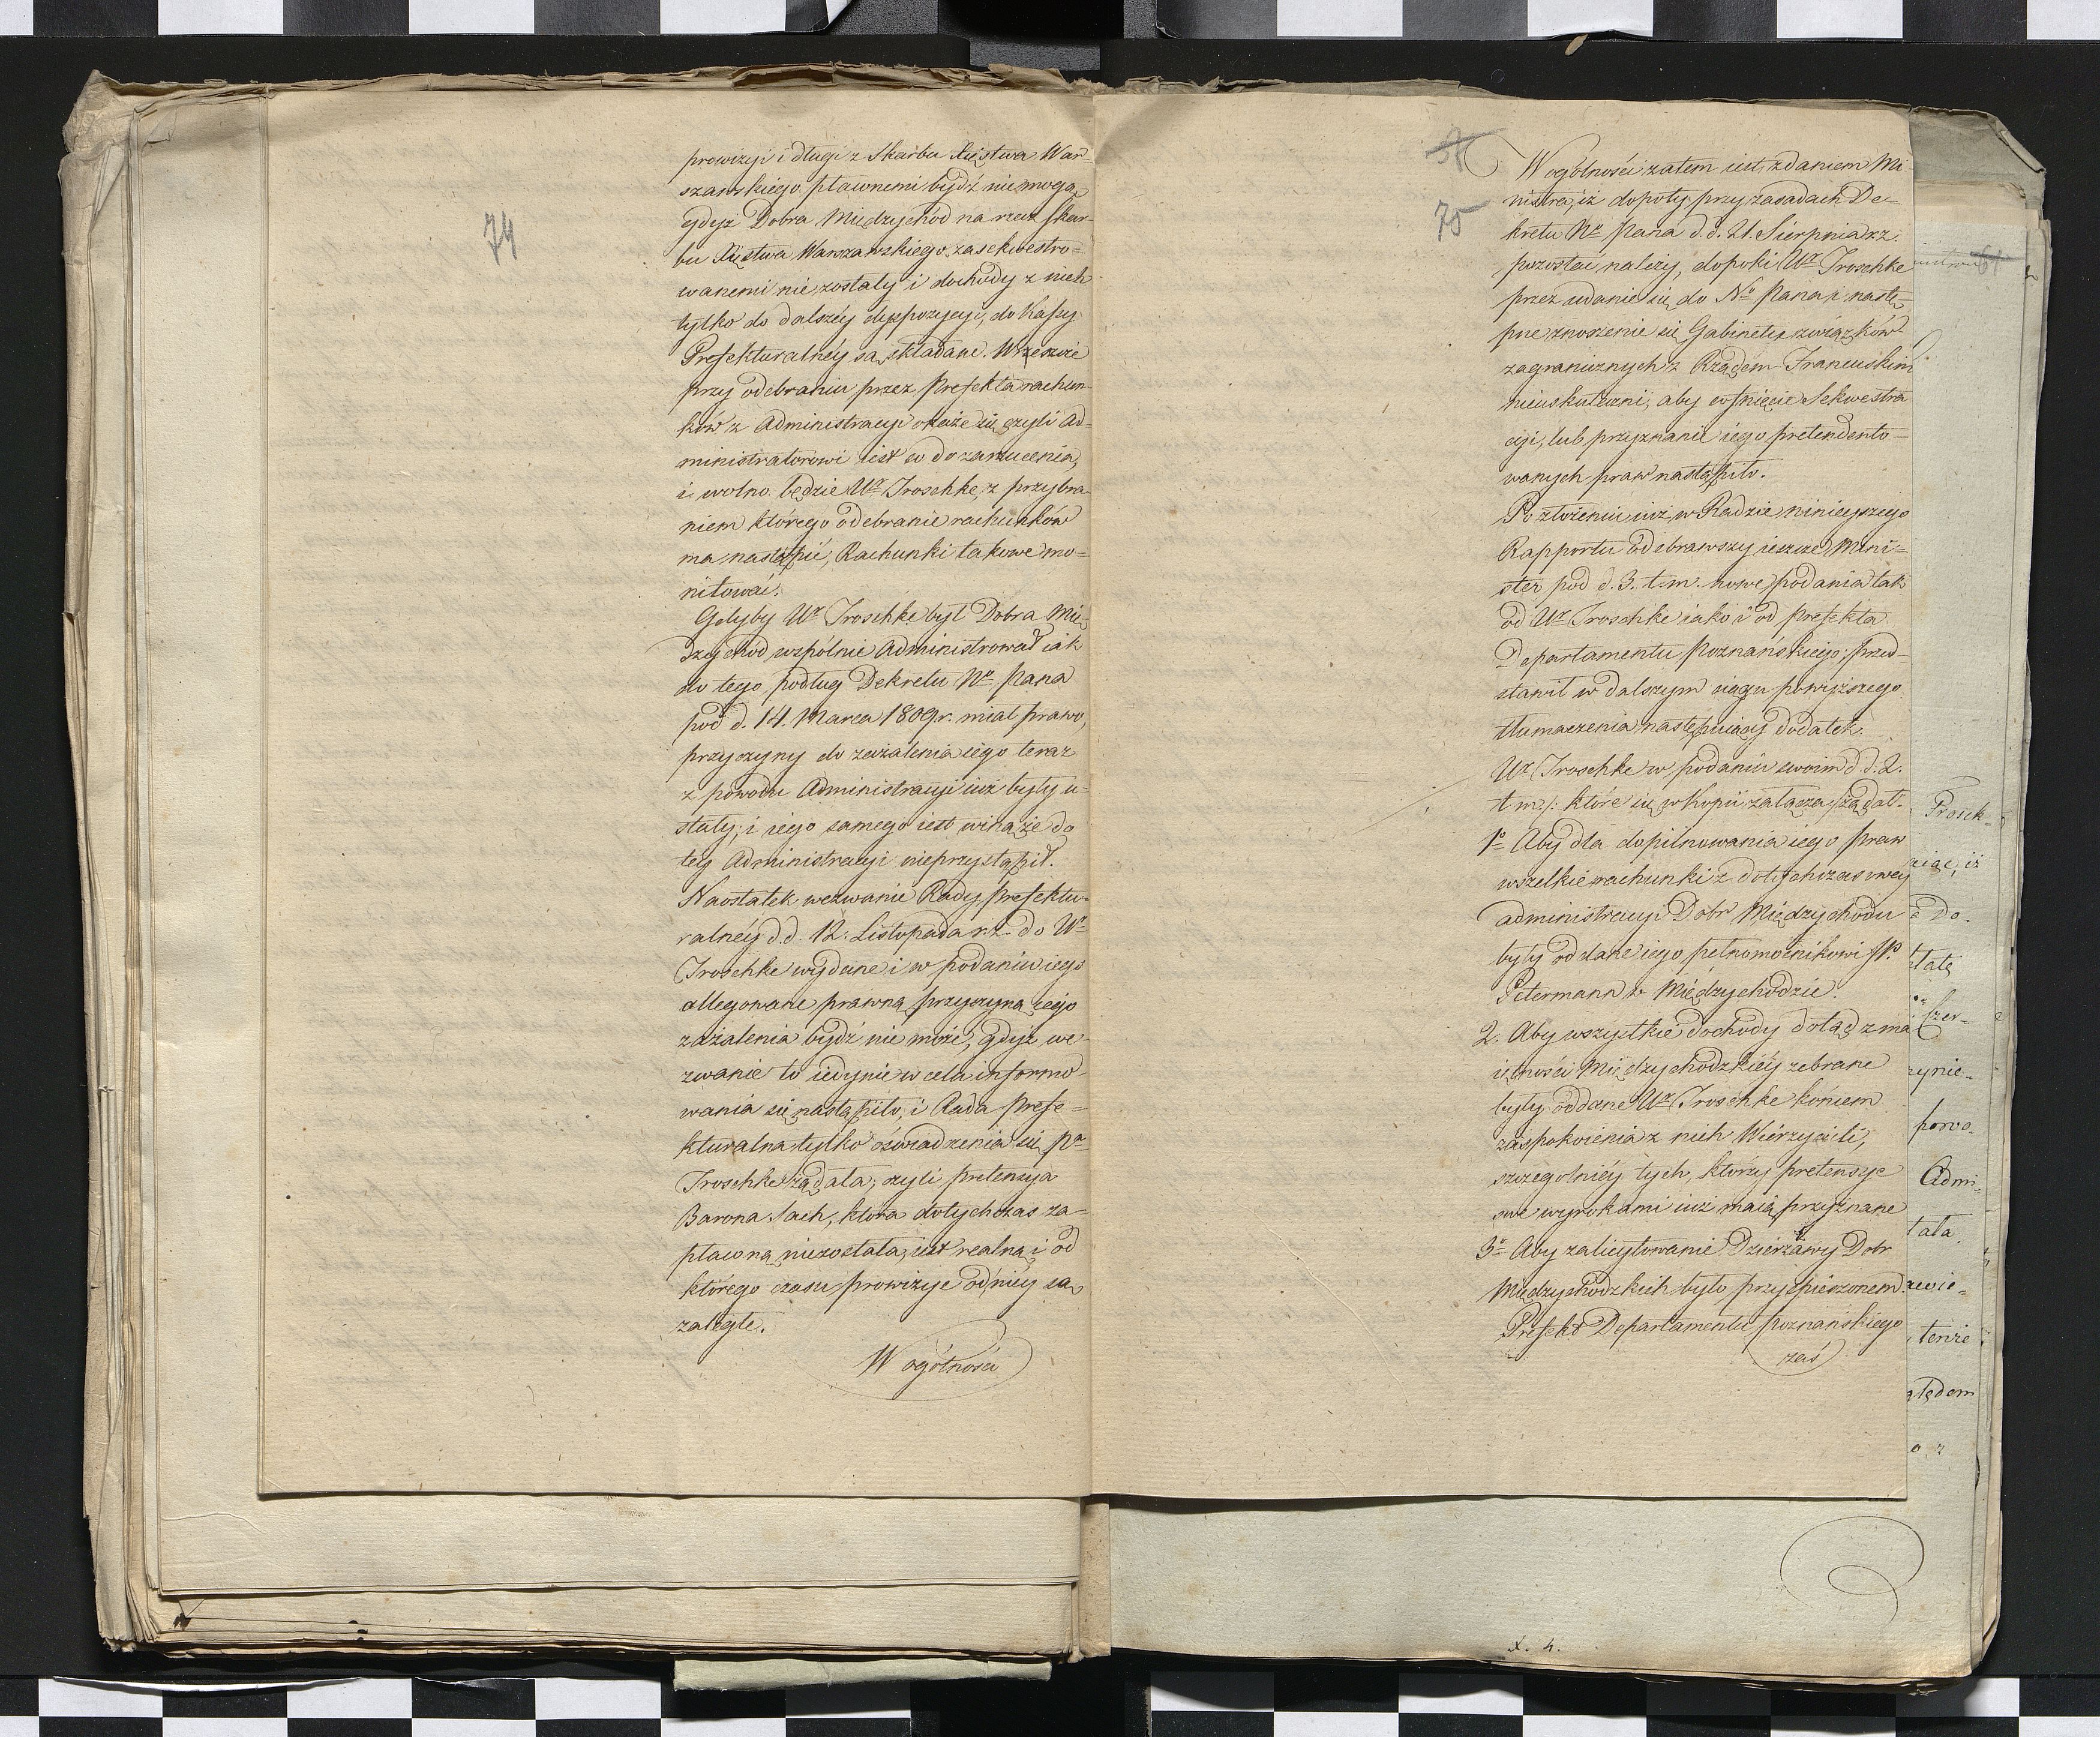 74
prowizyi i długi z Skarbu Xięstwa War-
szawskiego płatnemi bydź nie mogą
gdyż Dobra Międzychód na rzecz skar-
bu Xięstwa Warszawskiego zasekwestro-
wanemi nie zostały i dochody z nich
tylko do dalszéy dyspozycyi, do Kassy
Prefekturalnéy są składane. Wreszcie
przy odebraniu przez Prefekta rachun-
ków z Administracyi okaże się czyli Ad-
ministratorowi iest co do zarzucenia,
i wolno będzie Ur Troschke, z przybra-
niem którego odebranie rachunków
ma nastąpić, Rachunki takowe mo-
nitować.
Gdyby Ur Troschke był Dobra Mię-
dzychód wspólnie Administrował iak
do tego podług Dekretu Nº Pana
pod d. 14. Marca 1809 r. miał prawo,
przyczyny do zażalenia iego teraz
z powodu Administracyi iuż były u-
stały, i iego samego iest wina że do
téy Administracyi nieprzystąpił.
Naostatek wezwanie Rady Prefektu-
ralnéy d. d. 12. Listopada r. z. do Ur
Troschke wydane i w podaniu iego
allegowane prawną przyczyną iego
zażalenia bydź nie może, gdyż we-
zwanie to iedynie w celu informo-
wania się nastąpiło, i Rada Prefe-
kturalna tylko oświadczenia się Pa
Troschke żądała, czyli pretensya
Barona Sach, która dotychczas za-
płaconą niezostała, iest realną i od
którego czasu prowizye od niéy są
zaległe.
W ogólności
75
W ogólności zatem iest zdaniem Mi-
nistra, iż dopoty przy zasadach De-
kretu Nº Pana d. d. 21. Sierpnia r. z.
pozostać należy, dopoki Ur Troschke
przez udanie się do Nº Pana i nastę-
pne znoszenie się Gabinetu związków
zagranicznych z Rządem Francuskim
nieuskuteczni, aby cofnięcie Sekwestra
cyi, lub przyznanie iego pretendento-
wanych praw nastąpiło.
Po złożeniu iuż w Radzie ninieyszego
Rapportu odebrawszy ieszcze Mini-
ster pod d. 3. t. m. nowe podania tak
od Ur Troschke iako i od Prefekta
Departamentu Poznańskiego, przed-
stawił w dalszym ciągu powyższego
tłumaczenia następuiący dodatek.
Ur Troschke w podaniu swoim d. d. 2.
t. m. /: które się w Kopii załącza :/ żądał.
1º Aby dla dopilnowania iego praw
wszelkie rachunki z dotychczasowey
administracyi Dobr Międzychodu
były oddane iego pełnomocnikowi P.
Petermann w Międzychodzie.
2. Aby wszystkie dochody dotąd z ma
iętności Międzychodzkiéy zebrane
były oddane Ur Troschke końcem
zaspokoienia z nich Wierzycieli,
szczególniéy tych, którzy pretensye
swe wyrokami iuż maią przyznane
3º Aby zalicytowanie Dzierżawy Dobr
Międzychodzkich było przyspieszonem.
Prefekt Departamentu Poznańskiego
zaś
61
Trosch-
Do.
szer-
powo-
Admi-
tala
tenże
X. 4.